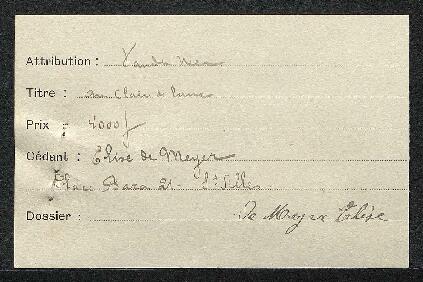 Attribution : Vander Neer
Titre : au Clair de lune
Prix : 4000 f
Cédant : Elise de Meyer
Place Bara 21 - St Gilles
Dossier : De Meyer Elise